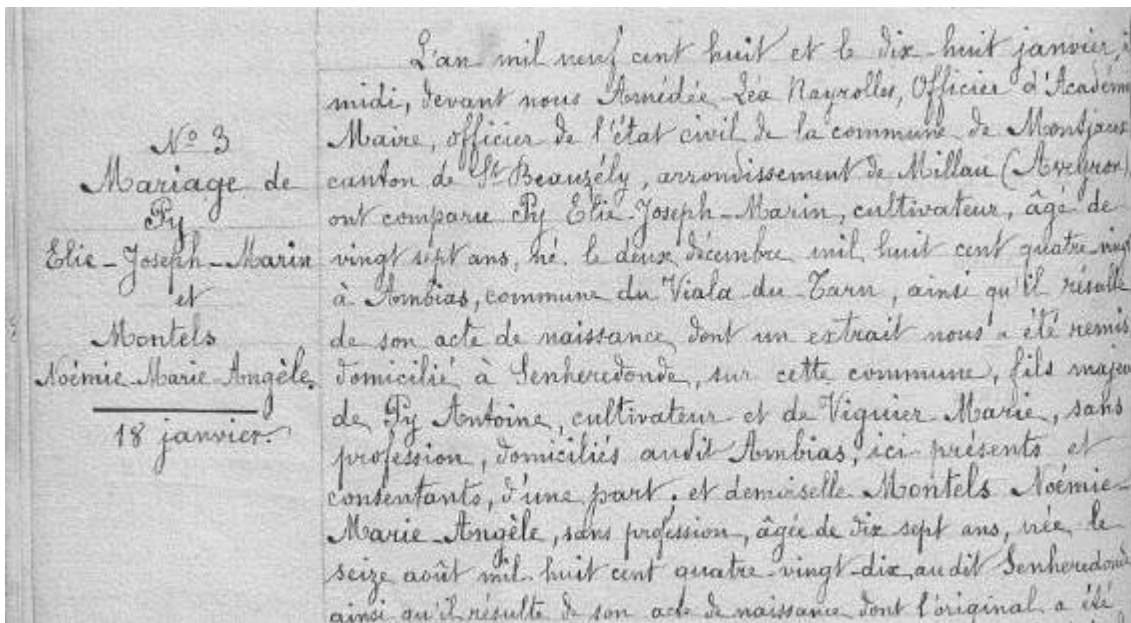 N° 3
Mariage de
Py
Elie-Joseph-Marin
et
Montels
Noémie-Marie-Angèle.
18 janvier.
L'an mil neuf cent huit et le dix-huit janvier, à
midi, devant nous Amédée-Léo Nayrolles, Officier d'Académie
Maire, officier de l'état civil de la commune de Montjaux
canton de St Beauzély, arrondissement de Millau (Aveyron),
ont comparu Py Elie-Joseph-Marin, cultivateur, âgé de
vingt sept ans, né le deux décembre mil huit cent quatre vingt
à Ambias, commune du Viala du Tarn, ainsi qu'il résulte
de son acte de naissance dont un extrait nous a été remis
domicilié à Senheredonde, sur cette commune, fils majeur
de Py Antoine, cultivateur et de Viguier Marie, sans
profession, domiciliés audit Ambias, ici présents et
consentants, d'une part, et demoiselle Montels Noémie-
Marie-Angèle, sans profession, âgée de dix sept ans, née le
seize août mil huit cent quatre-vingt-dix, audit Senheredonde
ainsi qu'il résulte de son acte de naissance dont l'original a été